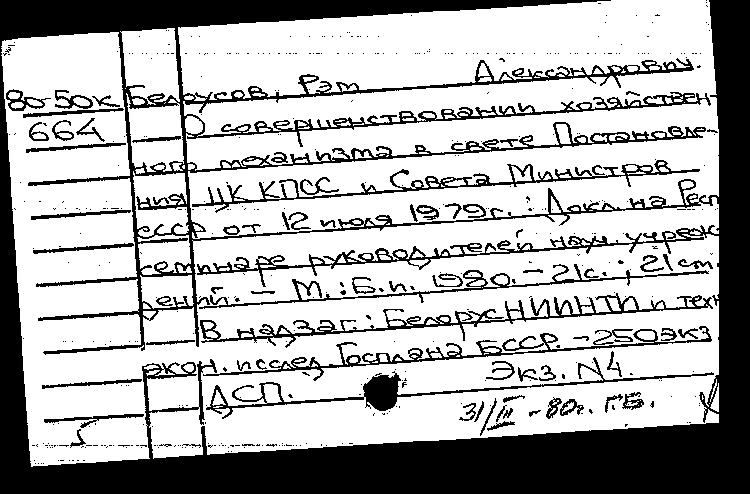 Белоусов, Рэм Александрович.
80-50к
664
О совершенствовании хозяйствен-
ного механизма в свете Постановле-
ния ЦК КПСС и Совета Министров
СССР от 12 июля 1979г.: Докл. на Респ
семинаре руководителей науч. учреж-
дений. - М.: Б.и., 1980. - 21с.; 21 см.
В надзаг.: БелорусНИИНТИ и техн
экон. исслед. Госплана БССР. - 250экз
ДСП. Экз. N4.
31/III - 80г. Г.Б.